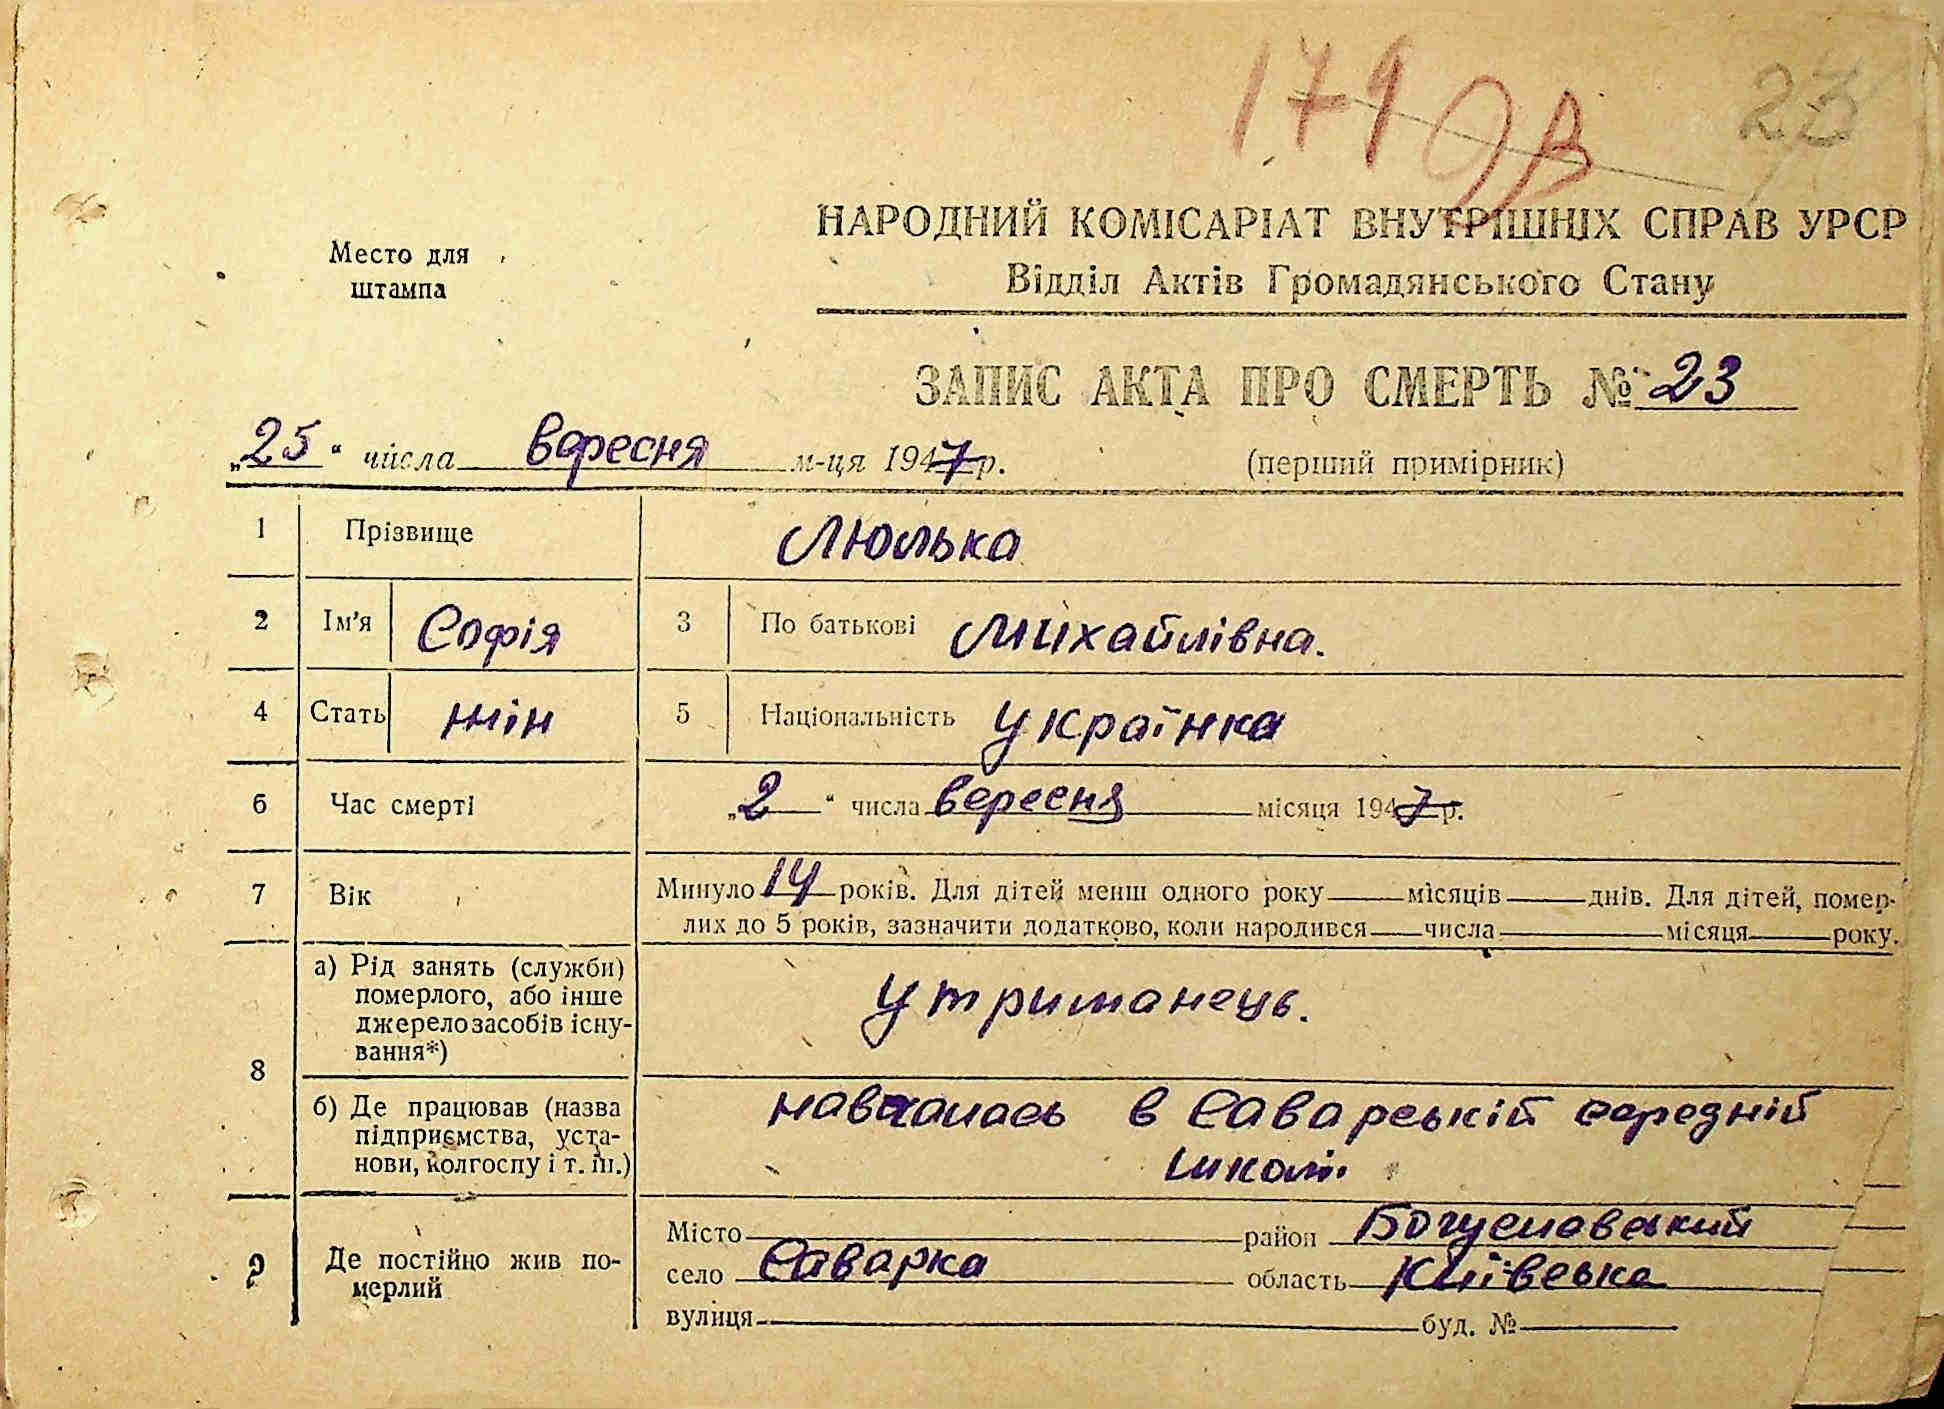 179 23
Место для
штампа
НАРОДНИЙ КОМІСАРІАТ ВНУТРІШНІХ СПРАВ УРСР
Відділ Актів Громадянського Стану
ЗАПИС АКТА ПРО СМЕРТЬ № 23
„25“ числа вересня м-ця 1947 р. (перший примірник)
1 Прізвище Люлька
2 Ім'я Софія 3 По батькові Михайлівна.
4 Стать жін 5 Національність Українка
6 Час смерті „2“ числа вересня місяця 1947 р.
7 Вік Минуло 14 років. Для дітей менш одного року місяців днів. Для дітей, помер-
лих до 5 років, зазначити додатково, коли народився числа місяця року.
8 а) Рід занять (служби)
померлого, або інше
джерело засобів існу-
вання*) Утриманець.
б) Де працював (назва
підприємства, уста-
нови, колгоспу і т. ін.) навчалась в Саварській середній
школі.
9 Де постійно жив по-
мерлий
Місто район Богуславський
село Саварка область Київська
вулиця буд. №